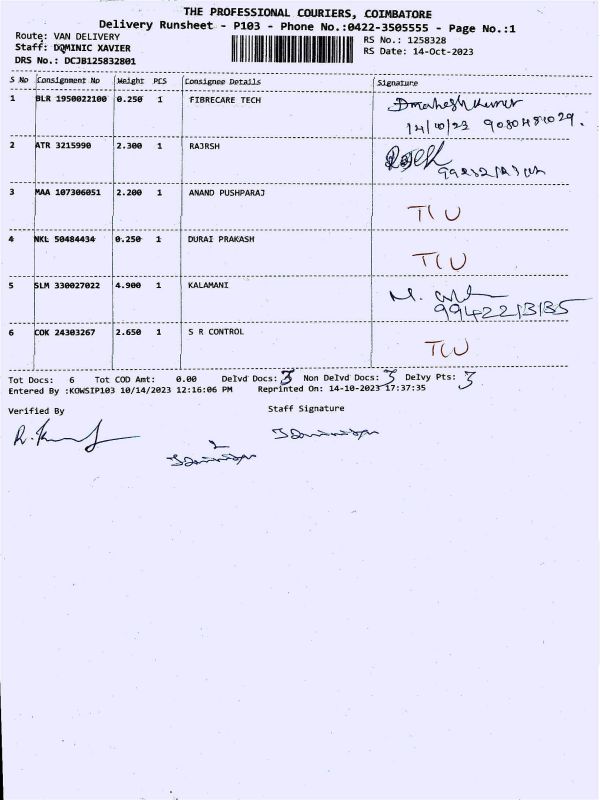 THE PROFESSIONAL COURIERS, COIMBATORE
Delivery Runsheet - P103 - Phone No.:0422-3505555 - Page No.:1
Route: VAN DELIVERY
RS No.: 1258328
Staff: DOMINIC XAVIER
RS Date: 14-Oct-2023
DRS No.: DCJB125832801
S No Consignment No Weight PCS Consignee Details Signature
1 BLR 1950022100 0.250 1 FIBRECARE TECH Dmahesh kumar
14/10/23 9080481029.
2 ATR 3215990 2.300 1 RAJRSH
3 MAA 107306051 2.200 1 ANAND PUSHPARAJ TCU
4 NKL 50484434 0.250 1 DURAI PRAKASH TCU
5 SLM 330027022 4.900 1 KALAMANI M.
9942213135
6 COK 24303267 2.650 1 S R CONTROL TCU
Tot Docs: 6 Tot COD Amt: 0.00 Delvd Docs: 3 Non Delvd Docs: 3 Delvy Pts: 3
Entered By :KOWSIP103 10/14/2023 12:16:06 PM Reprinted On: 14-10-2023 17:37:35
Verified By Staff Signature